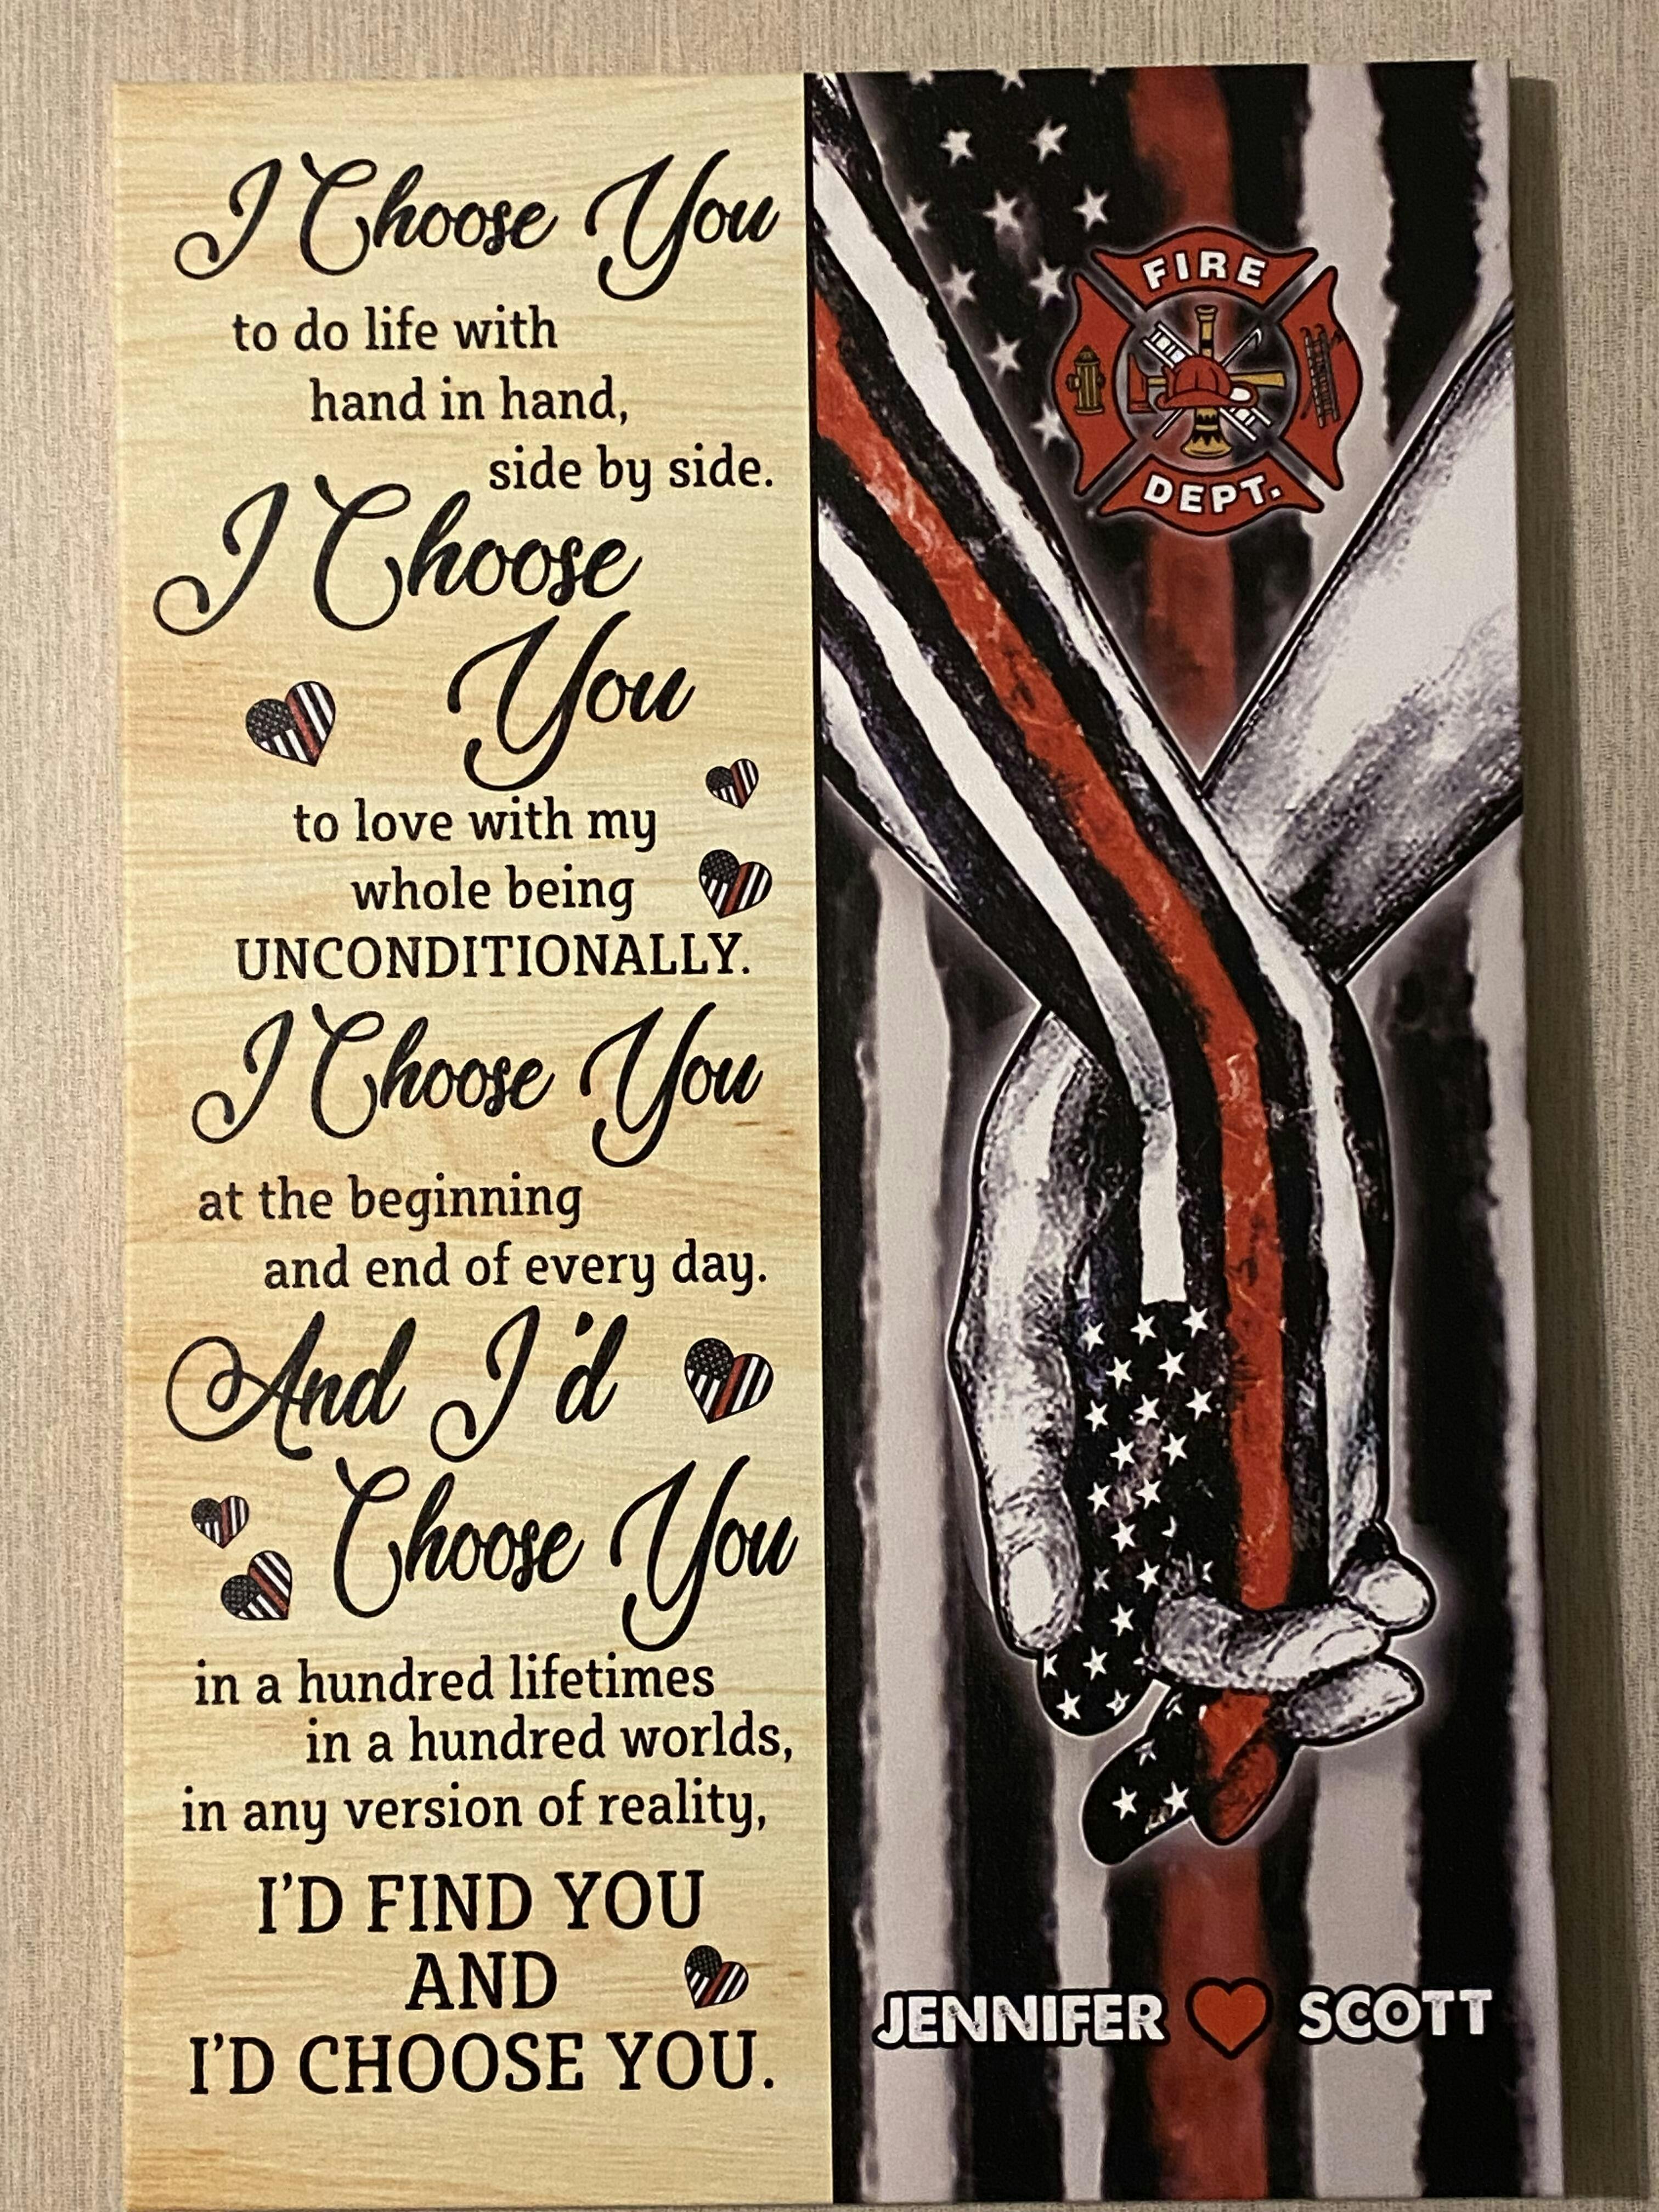 I Choose You
to do life with
hand in hand,
side by side.
I Choose
You
to love with my
whole being
UNCONDITIONALLY.
I Choose You
at the beginning
and end of every day.
And I'd
Choose You
in a hundred lifetimes
in a hundred worlds,
in any version of reality,
I'D FIND YOU
AND
I'D CHOOSE YOU.
FIRE
DEPT.
JENNIFER SCOTT